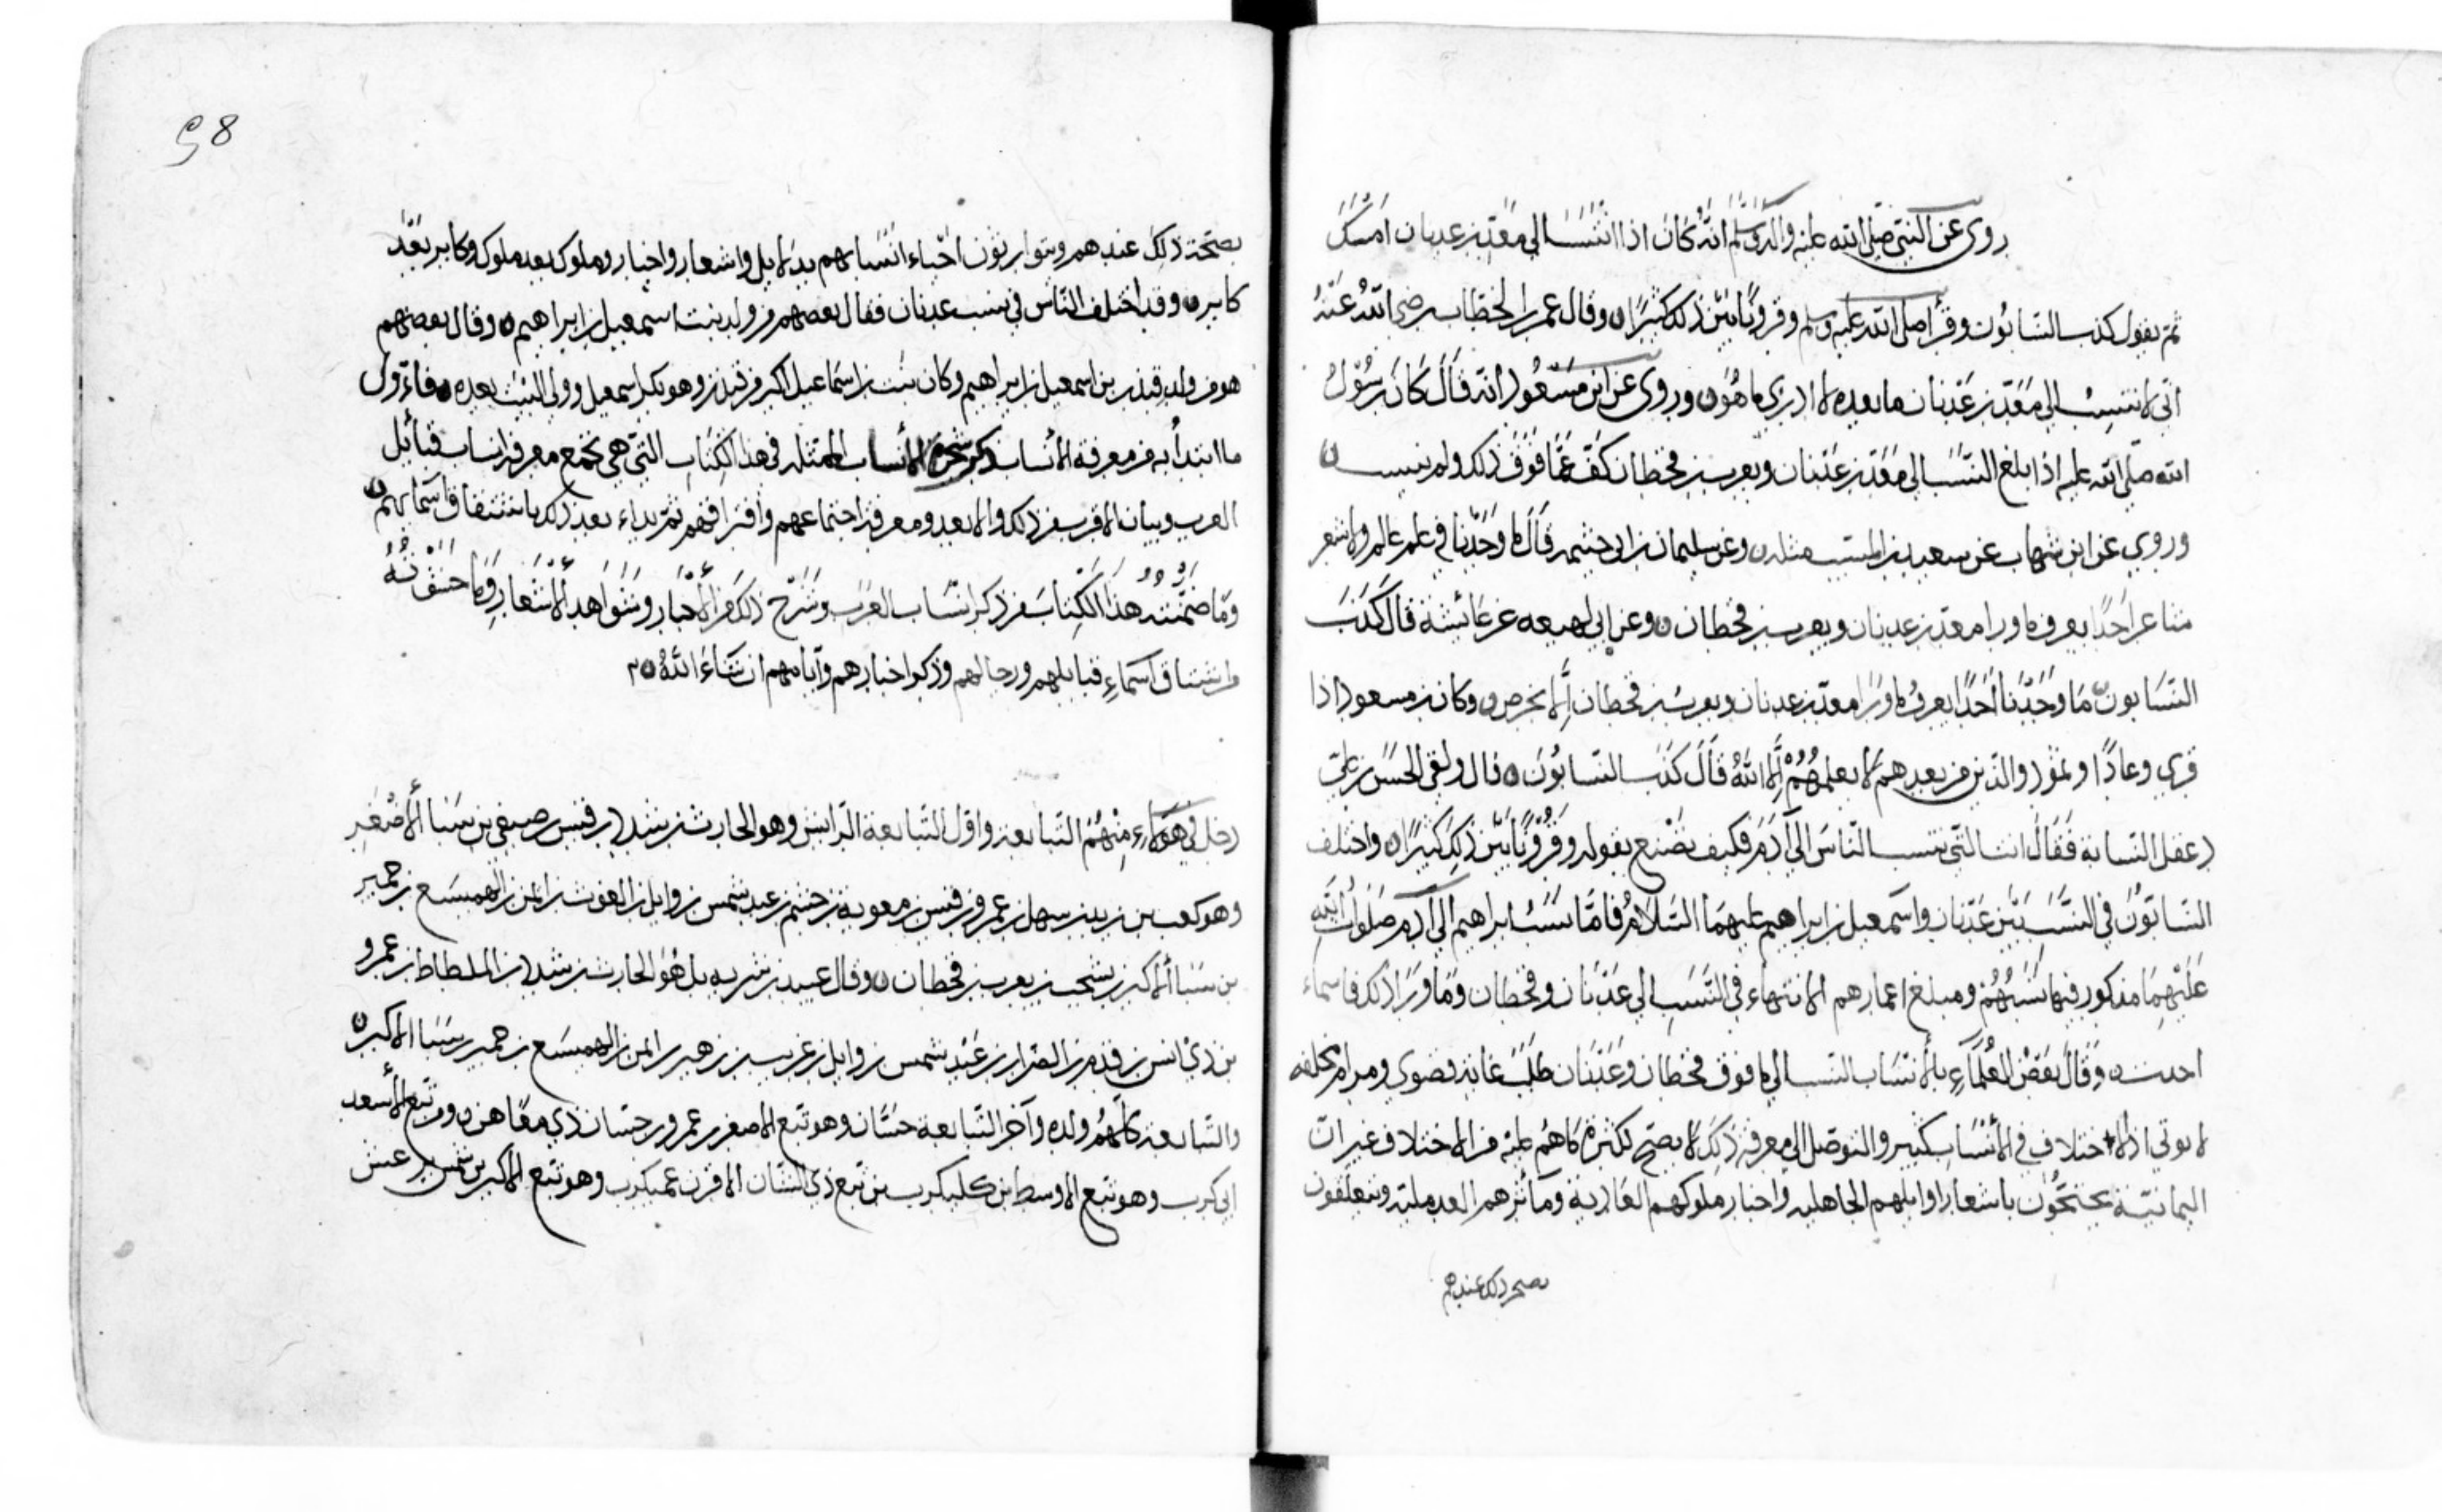 روى عن النبي صلى الله عليه وآله وسلم انه كان اذا انتسب الى معد بن عدنان امسك
ثم يقول كذب النسابون وقرأ صلى الله عليه وسلم وقرونا بين ذلك كثيرا وقال عمر بن الخطاب رضي الله عنه
اني لانتسب الى معد بن عدنان ما بعده لا ادري ما هو وروى عن ابن مسعود انه قال كان رسول
الله صلى الله عليه اذا بلغ النسب الى معد بن عدنان ويعرب بن قحطان كف عما فوق ذلك ولم ينسب
وروي عن ابن شهاب عن سعيد بن المسيب مثله وعن سليمان بن ابي حثيمه قال ما وجدنا في علم عالم ولا شعر
شاعر احدا يعرف ما ورا معد بن عدنان ويعرب بن قحطان وعن ابي لهيعه عن عائشة قال كذب
النسابون ما وجدنا احدا يعرف ما ورا معد بن عدنان ويعرب بن قحطان إلا بخرص وكان بن مسعود اذا
قري وعادا وثمود والذين من بعدهم لا يعلمهم إلا الله قال كذب النسابون قال ولقي الحسن بن علي
دغفل النسابة فقال انت التي تنسب الناس الى آدم فكيف تصنع بقوله وقرونا بين ذلك كثيرا واختلف
النسابون في النسب بين عدنان واسمعيل بن ابراهيم عليهما السلام فاما نسب ابراهيم الى آدم صلوات الله
عليهما مذكور فيها نسبهم ومبلغ اعمارهم الانتهاء في النسب الى عدنان وقحطان وما ورا ذلك فاسماء
احدث وقال بعض العلماء بالأنساب النسب الى ما فوق قحطان وعدنان طلب غاية قصوي ومرام
لا يوتي اذ الاختلاف في الأنساب كثير والتوصل الى معرفة ذلك لا يصح لكثرة ما هم عليه من الاختلاف غير ان
اليمانية يحتجون باشعار اوايلهم الجاهليه واخبار ملوكهم العادية ومآثرهم العدمليه ويتعلقون
بصحة ذلك عندهم
98
بصحة ذلك عندهم ويتوارثون احباء انسابهم بدلايل واشعار واخبار وملوك بعد ملوك وكابر بعد
كابر وقد اختلف الناس في نسب عدنان فقال بعضهم من ولد نبت اسمعيل بن ابراهيم وقال بعضهم
هو من ولد قيذر بن اسمعيل بن ابراهيم وكان نبت بن اسماعيل اكبر من قيذر وهو بكر اسمعيل وولى البيت بعده فاول
ما ابتدأ به من معرفة الأنساب ذكر شجرة الأنساب الممتثله في هذا الكتاب التي هي تجمع معرفة انساب قبائل
العرب وبيان الاقرب من ذلك والابعد ومعرفة اجتماعهم وافتراقهم ثم بداء بعد ذلك باشتقاق اسمائهم
وما ضمنته هذا الكتاب من ذكر انساب العرب وشرح ذلك من الأخبار وشواهد الأشعار وما
واشتقاق اسماء قبايلهم ورجالهم وذكر اخبارهم وآيامهم ان شاء الله
دخل في هولاء منهم التبابعة واول التبابعة الرايش وهو الحارث بن شدد بن قيس بن صيفي بن سبا الأصغر
وهو كعب بن زيد بن سهل بن عمرو بن قيس بن معوية بن جشم بن عبد شمس بن وايل بن الغوث بن ايمن بن الهميسع بن حمير
بن سبا الأكبر بن يشجب بن يعرب بن قحطان وقال عبيد بن شريه بل هو الحارث بن شدد بن الملطاط بن عمرو
بن ذي انس بن قدم بن الصوار بن عبد شمس بن وايل بن غريب بن زهير بن ايمن بن الهميسع بن حمير بن سبا الاكبر
والتبابعة كلهم ولده وآخر التبابعة حسان وهو تبع الاصغر بن عمرو بن حسان ذي معاهر ومن تبع الأسعد
ابي كرب وهو تبع الاوسط بن كليكرب بن تبع ذي الشان الاقرن عميكرب وهو تبع الاكبر بن شمر يرعش